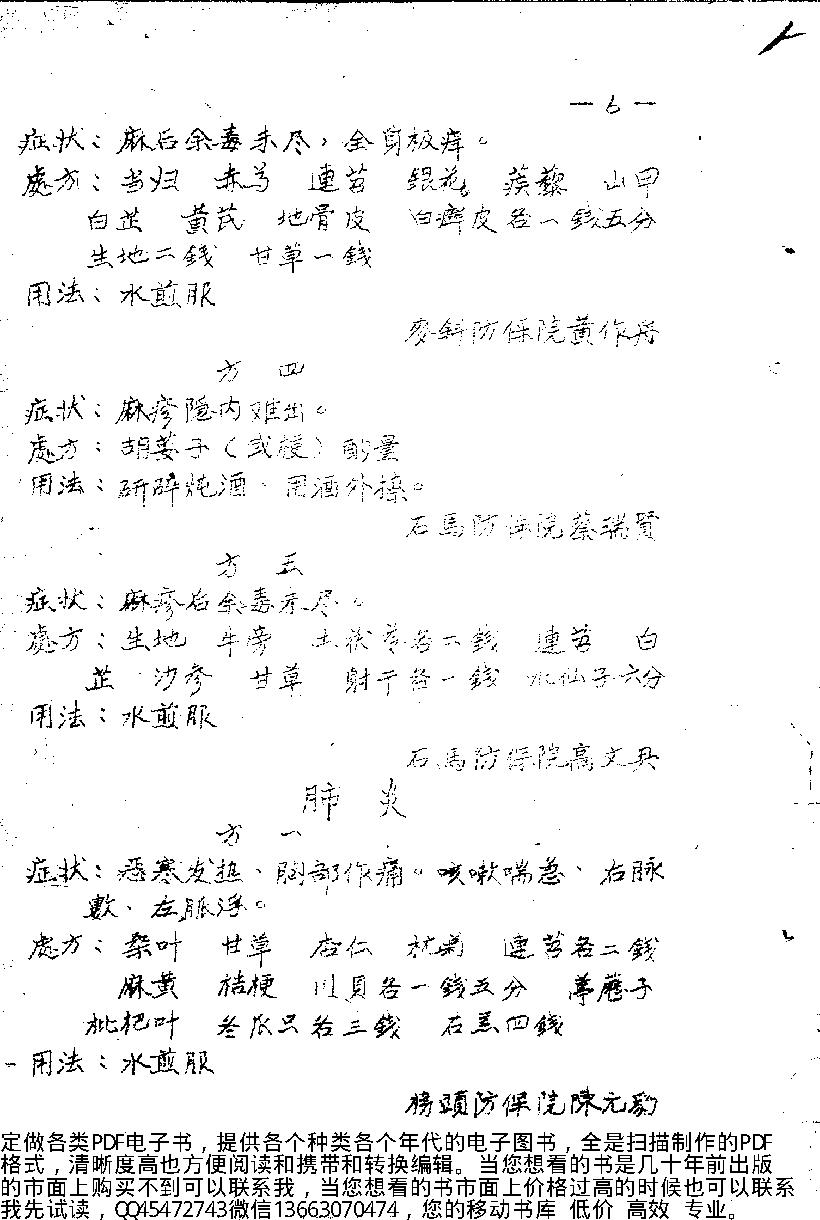 —6—
症状：麻后余毒未尽，全身极痒。
處方：当归 赤芍 連苕 銀花 蒺藜 山甲
白芷 黄芪 地骨皮 白癬皮各一錢五分
生地二錢 甘草一錢
用法：水煎服
麥斜防保院黄作舟
方 四
症状：麻疹隐内难出。
處方：胡荽子（或梗）酌量
用法：研碎炖酒、用酒外擦。
石馬防保院蔡瑞賢
方 五
症状：麻疹后余毒未尽。
處方：生地 牛旁 土茯苓各二錢 連苕 白
芷 沙参 甘草 射干各一錢 水仙子六分
用法：水煎服
石馬防保院高文丹
肺 炎
方 一
症状：恶寒发热、胸部作痛。咳嗽喘急、右脉
數、左脈浮。
處方：桑叶 甘草 杏仁 杭菊 連苕各二錢
麻黄 桔梗 川貝各一錢五分 葶藶子
枇杷叶 冬瓜只各三錢 石羔四錢
用法：水煎服
榜頭防保院陳元
定做各类PDF电子书，提供各个种类各个年代的电子图书，全是扫描制作的PDF
格式，清晰度高也方便阅读和携带和转换编辑。当您想看的书是几十年前出版
的市面上购买不到可以联系我，当您想看的书市面上价格过高的时候也可以联系
我先试读，QQ45472743微信13663070474，您的移动书库 低价 高效 专业。